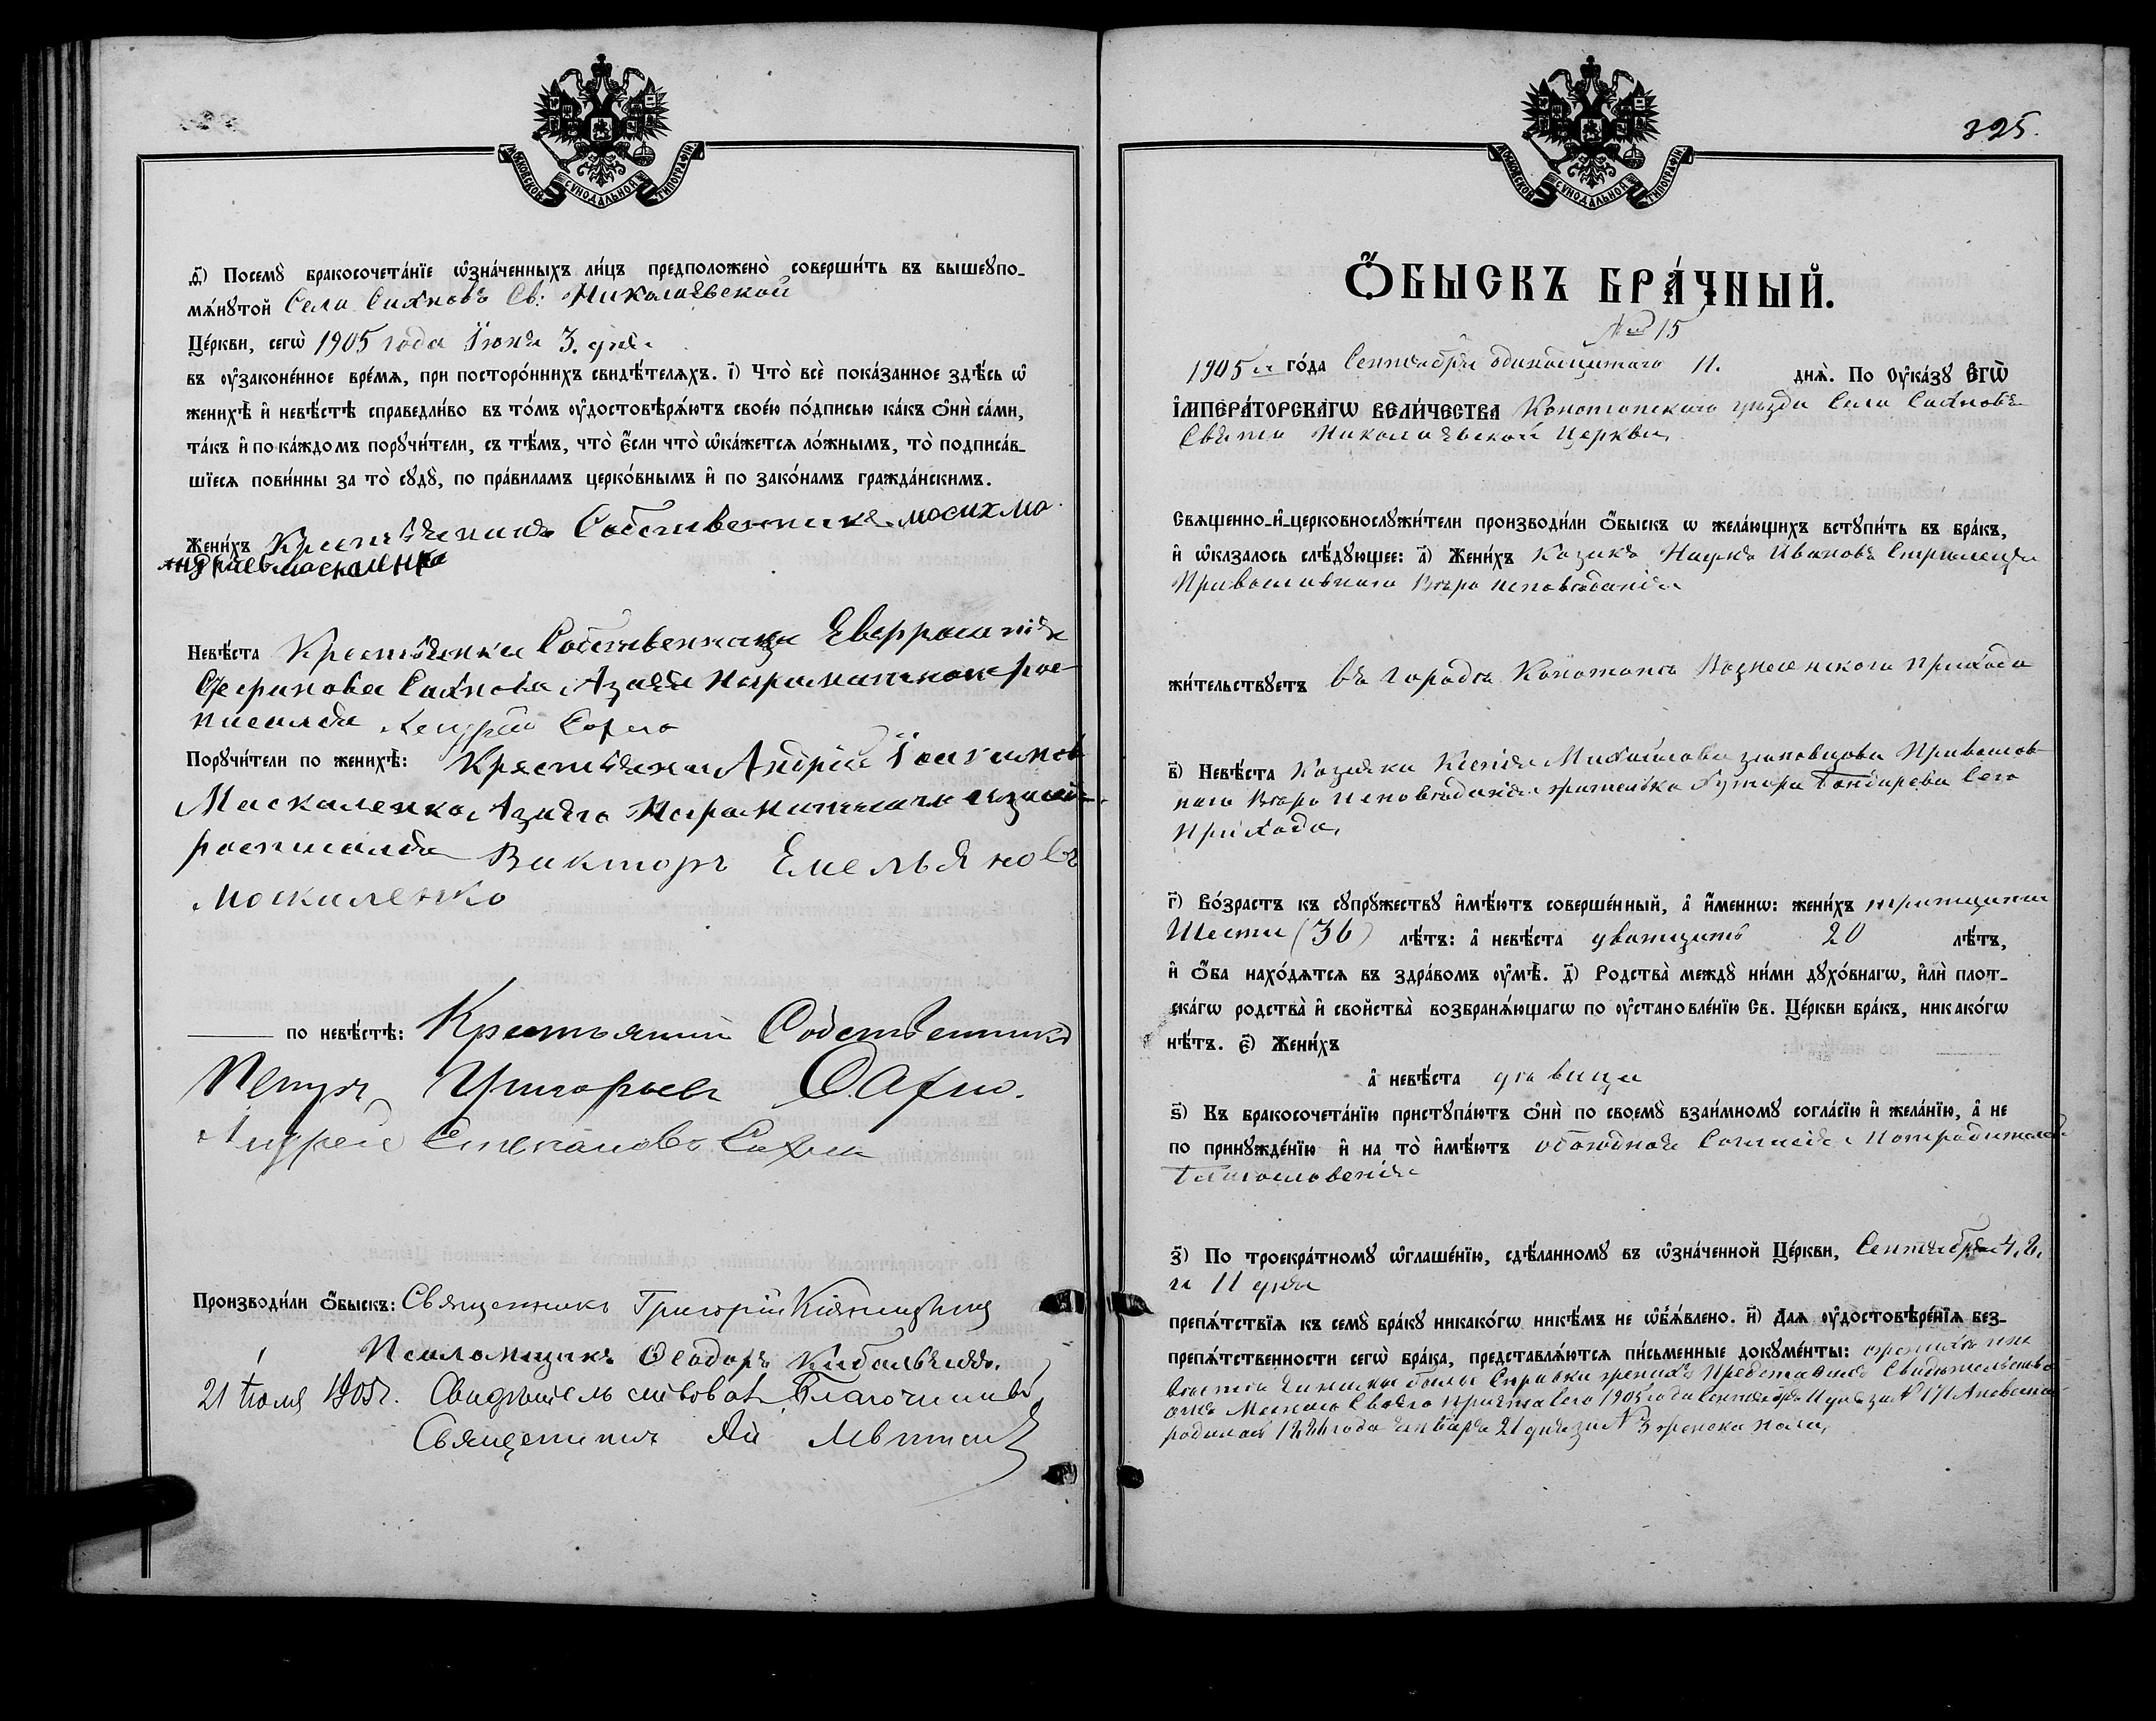 МОСКОВСКОЙ СѴНОДАЛЬНОЙ ТИПОГРАФІИ
д҃) Посемꙋ̀ бракосочета́нїе ѡ҆зна́ченныхъ ли́цъ предположено̀ соверши́ть въ вышеꙋпо-
мѧ́нꙋтой Села Сахновъ Св: Николаевской
Це́ркви, сегѡ̀ 1905 года Іюня 3. дня
въ ᲂу҆законе́нное вре́мѧ, при посторо́ннихъ свидѣ́телѧхъ. і҃) Что̀ всѐ пока́занное здѣ́сь ѡ҆
женихѣ̀ и҆ невѣ́стѣ справедли́во въ то́мъ ᲂу҆достовѣрѧ́ютъ свое́ю по́дписью ка́къ ѻ҆нѝ са́ми,
та́къ и҆ по ка́ждомъ порꙋчи́тели, съ тѣ́мъ, что̀ є҆́сли что̀ ѡ҆ка́жетсѧ ло́жнымъ, то̀ подписа́в-
шїесѧ пови́нны за то̀ сꙋдꙋ̀, по пра́виламъ церко́внымъ и҆ по зако́намъ гражда́нскимъ.
Жени́хъ Крестьянинъ Собственникъ
Андрїевъ москаленко
Невѣ́ста Крестьянка Собственница Евфросинія
Сахнова Азанея Неграматною рос-
писался Андрій Сахно
Порꙋчи́тели по женихѣ̀: Крестьянинъ Андрій Іоакимов
Маскаленко Азанего Неграматнаго
росписался Викторъ Емельяновъ
Москаленко
по невѣ́стѣ: Крестьянинъ Собственникъ
Петръ Григорьевъ Сахно.
Андрей Степановъ Сахно
Производи́ли ѻ҆́быскъ: Священникъ Григорій
Псаломщикъ Ѳеодоръ Кибальчичъ.
21 Іюля 1905г. Свидѣтельствовалъ Благочинный
Священникъ
325.
МОСКОВСКОЙ СѴНОДАЛЬНОЙ ТИПОГРАФІИ
Ѻ҆́БЫСКЪ БРА́ЧНЫЙ.
№ 15
1905 го́да Сентября одинацатаго 11. днѧ̀. По Оу҆ка́зꙋ Є҆Гѡ̀
І҆МПЕРА́ТОРСКАГѠ ВЕЛИ́ЧЕСТВА Конотопскаго уѣзда Села Сахновъ
Свято Николаевской Церкви,
Свѧщенно-и҆-церковнослꙋжи́тели производи́ли ѻ҆́быскъ ѡ жела́ющихъ вступи́ть въ бра́къ,
и҆ ѡ҆казалось слѣ́дꙋющее: а҃) Жени́хъ Козакъ Наумъ Ивановъ Стрилецъ
Православнаго Вѣро исповѣданія
жи́тельствꙋетъ въ городѣ Конотопѣ Вознесенскаго прихода
в҃) Невѣ́ста Козачка Ксенія Михайлова Православ-
наго Вѣро исповѣданія жителька Хутора Бондарева Сего
Прихода,
г҃) Во́зрастъ къ сꙋпрꙋ́жествꙋ и҆мѣ́ютъ соверше́нный, а҆ и҆́меннѡ: жени́хъ тритцати
Шести (36) лѣ́тъ: а҆ невѣ́ста дватцать 20 лѣ́тъ,
и҆ ѻ҆́ба нахо́дѧтсѧ въ здра́вомъ ᲂу҆мѣ̀. д҃) Родства̀ междꙋ̀ ни́ми дꙋхо́внагѡ, и҆лѝ плот-
ска́гѡ родства̀ и҆ сво́йства̀ возбранѧ́ющагѡ по ᲂу҆становле́нїю Св. Це́ркви бра́къ, никако́гѡ
нѣ́тъ. є҃) Жени́хъ
а҆ невѣ́ста дѣвица
ѕ҃) Къ бракосочета́нїю пристꙋпа́ютъ ѻ҆нѝ по своемꙋ̀ взаи́мномꙋ согла́сїю и҆ жела́нїю, а҆ не
по принꙋжде́нїю и҆ на то̀ и҆мѣ́ютъ обоюдная Согласія
Благословенія
з҃) По троекра́тномꙋ ѡ҆глаше́нїю, сдѣ́ланномꙋ въ ѡ҆зна́ченной Це́ркви, Сентября 4, 8,
и 11 дня
препѧ́тствїѧ къ семꙋ̀ бра́кꙋ никако́гѡ никѣ́мъ не ѡ҆б̾ѧ́влено. и҃) Длѧ ᲂу҆достовѣре́нїѧ без-
препѧ́тственности сегѡ̀ бра́ка, представлѧ́ютсѧ пи́сьменные докꙋме́нты:
были Справки женихъ Представилъ Свидѣтельство
своего причта Сего 1905 года Сентября 11 дня за № 171 А невѣста
родилась года Января 21 дня за № 3 женска пола,